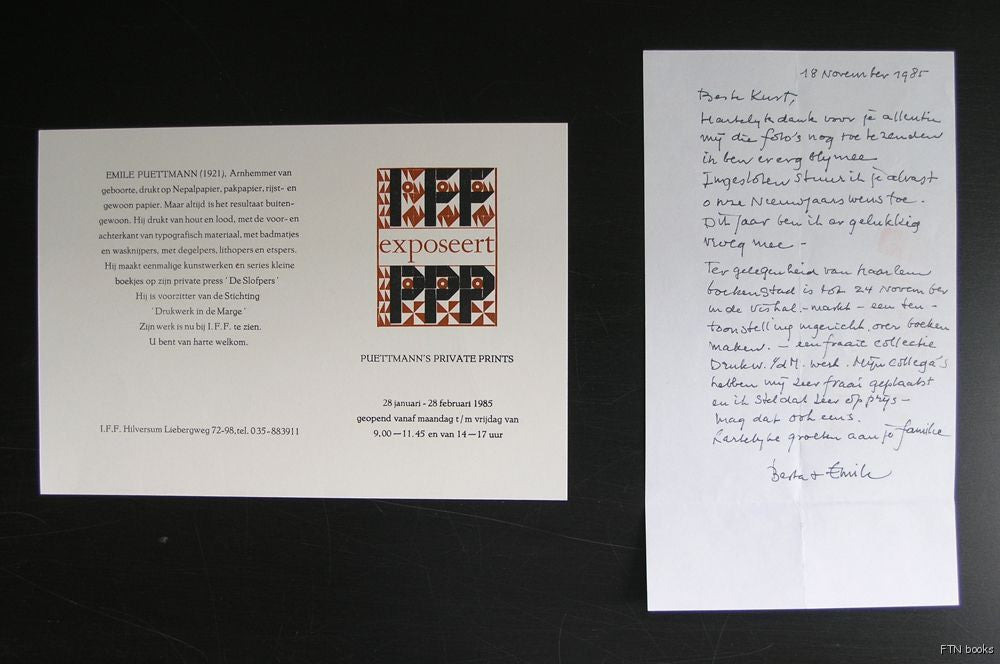 EMILE PUETTMANN (1921), Arnhemmer van
geboorte, drukt op Nepalpapier, pakpapier, rijst- en
gewoon papier. Maar altijd is het resultaat buiten-
gewoon. Hij drukt van hout en lood, met de voor- en
achterkant van typografisch materiaal, met badmatjes
en wasknijpers, met degelpers, lithopers en etspers.
Hij maakt eenmalige kunstwerken en series kleine
boekjes op zijn private press 'De Slofpers'
Hij is voorzitter van de Stichting
'Drukwerk in de Marge'
Zijn werk is nu bij I.F.F. te zien.
U bent van harte welkom.
I.F.F. Hilversum Liebergweg 72-98, tel. 035-883911
IFF
exposeert
PPP
PUETTMANN'S PRIVATE PRINTS
28 januari - 28 februari 1985
geopend vanaf maandag t/m vrijdag van
9.00—11.45 en van 14—17 uur
18 November 1985
Beste Kurt,
Hartelyk dank voor je attentie
mij die foto's nog toe te zenden
ik ben er erg bly mee
Ingesloten stuur ik je alvast
onze Nieuwjaarswens toe.
Dit jaar ben ik er gelukkig
vroeg mee -
Ter gelegenheid van Haarlem
boekenstad is tot 24 November
in de Vishal. - markt - een ten -
toonstelling ingericht over boeken
maken. - een fraaie collectie
Drukw. i/d M. werk. Mijn collega's
hebben mij zeer fraai geplaatst
en ik stel dat zeer op prijs -
mag dat ook eens.
Hartelyke groeten aan je familie
Berta + Emile
FTN books